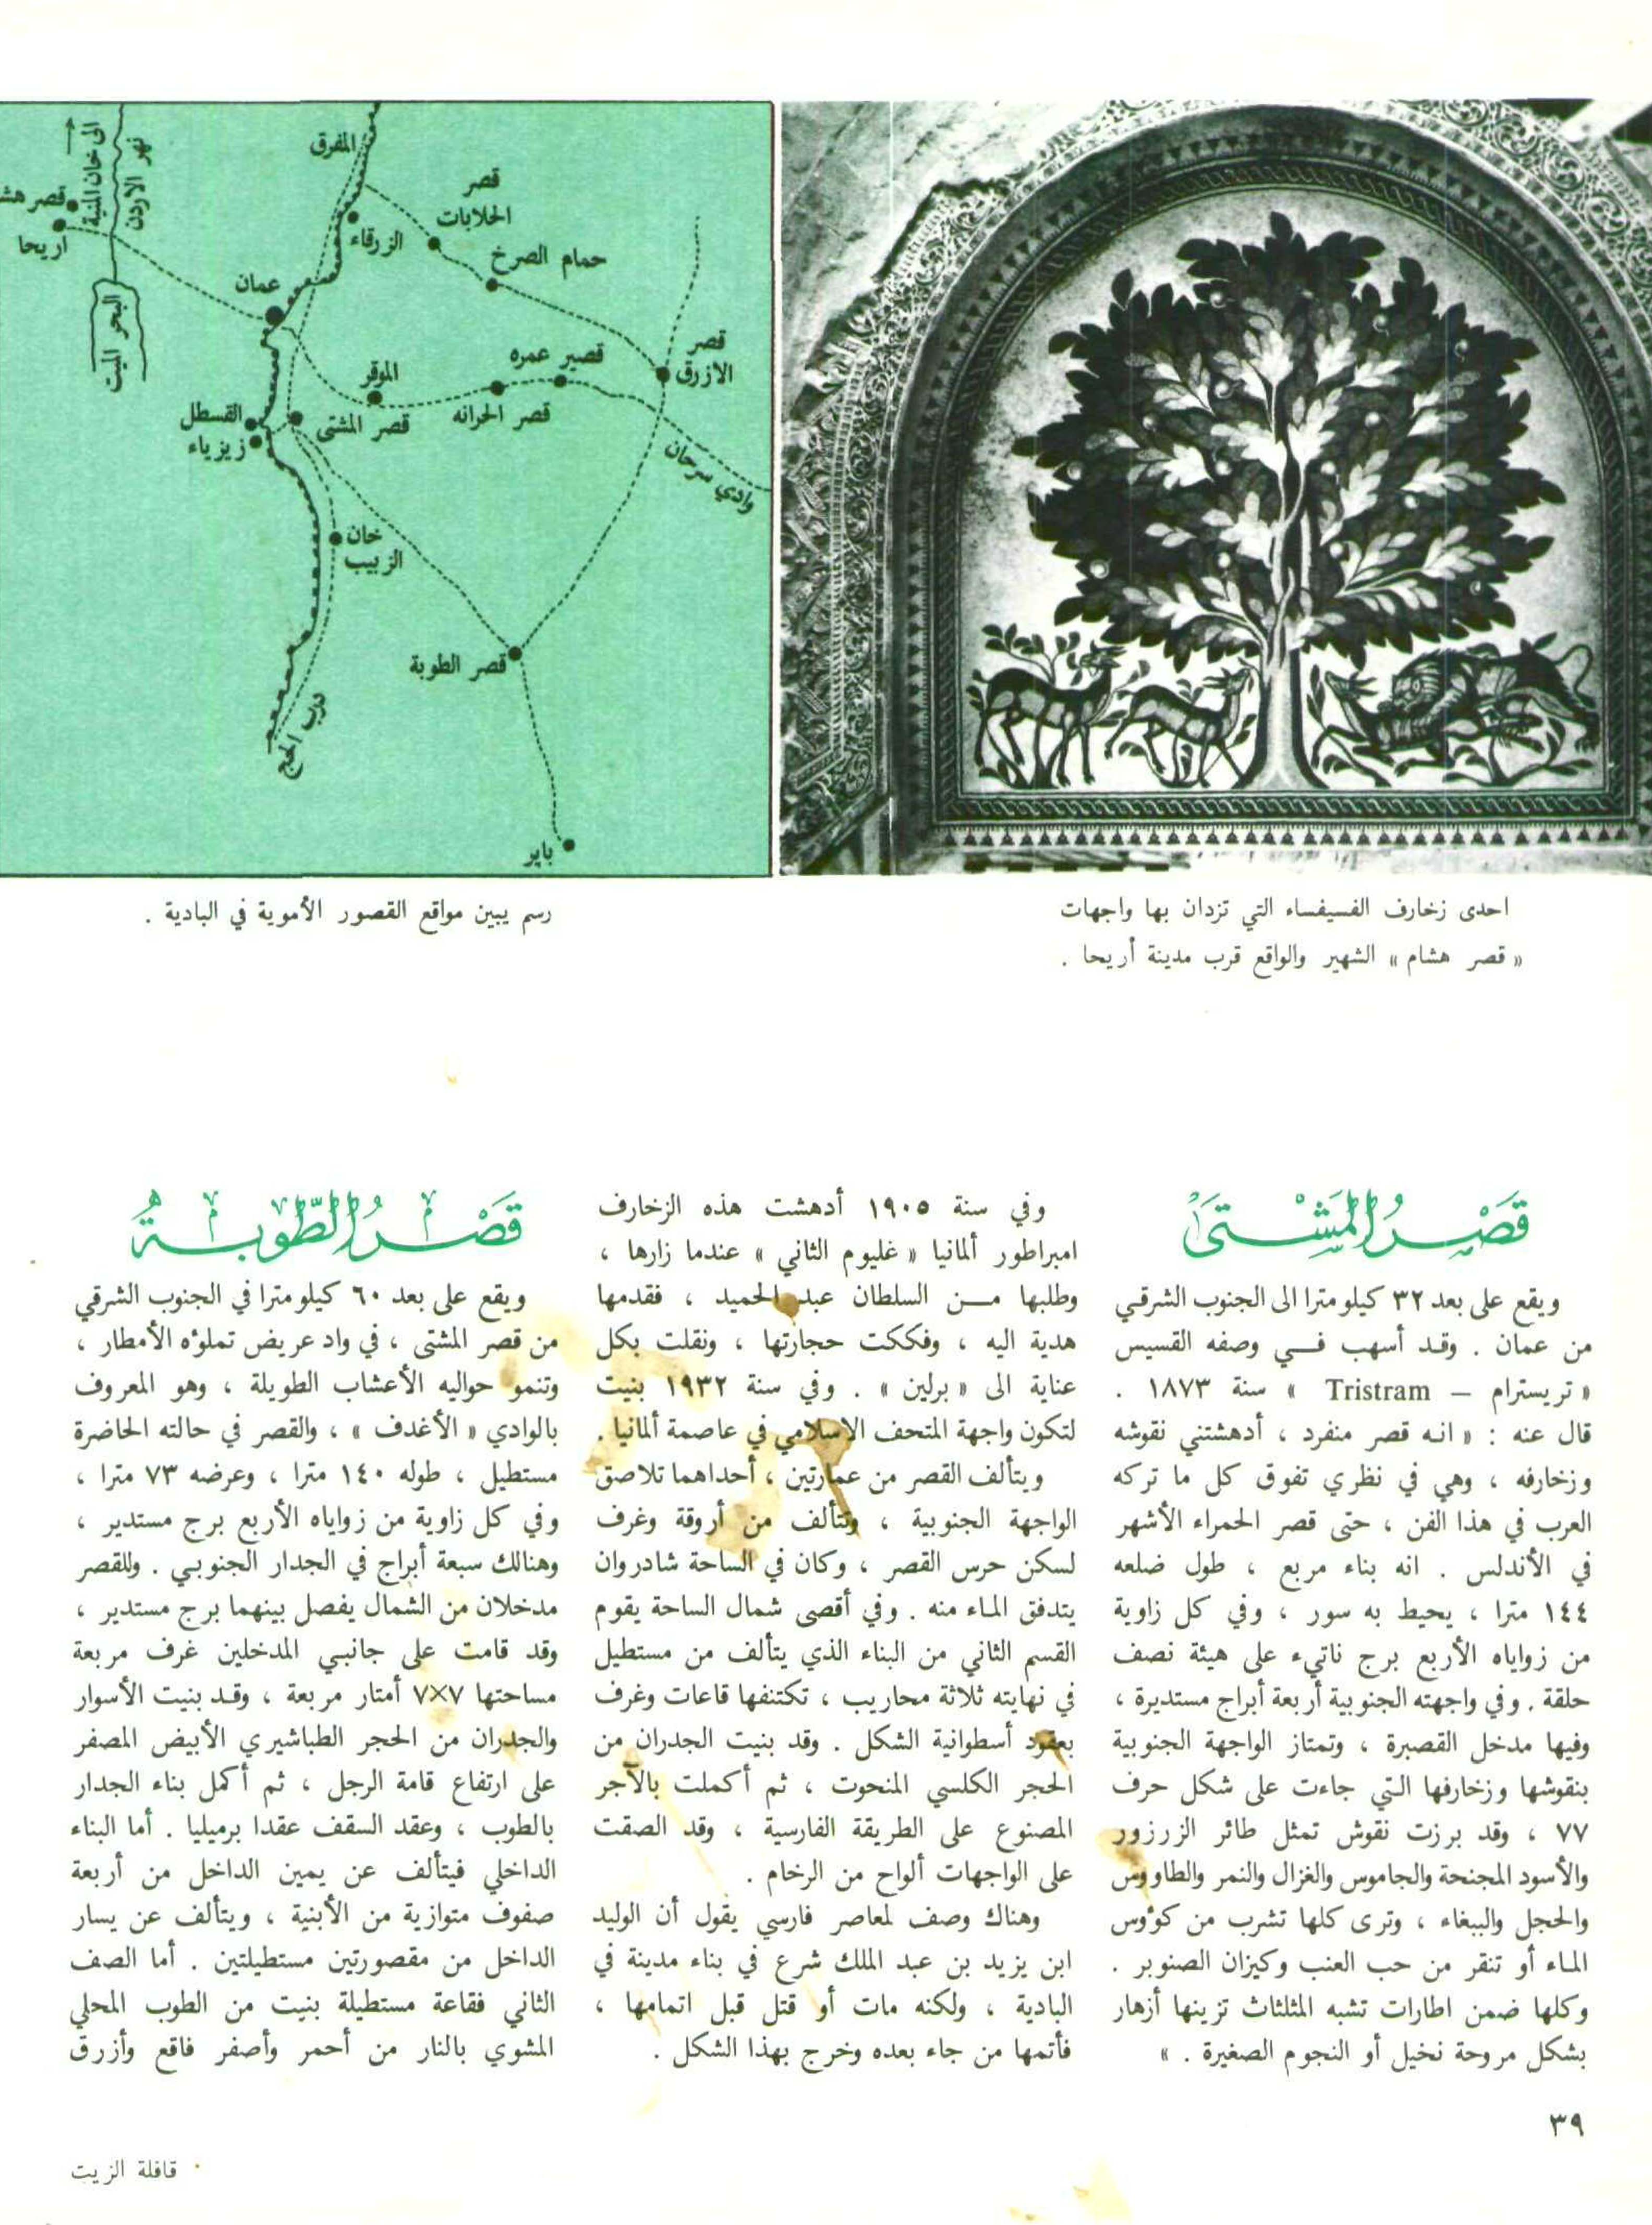 المفرق
قصر
الحلابات
الزرقاء
حمام الصرخ
الى خان المنية
نهر الاردن
قصر هش
اريحا
البحر الميت
عمان
الموقر
قصير عمره
قصر
الازرق
القسطل
زيزياء
قصر المشتى
قصر الحرانه
وادي سرحان
خان
الزبيب
قصر الطوبة
درب الحج
باير
احدى زخارف الفسيفساء التي تزدان بها واجهات
« قصر هشام » الشهير والواقع قرب مدينة أريحا .
رسم يبين مواقع القصور الأموية في البادية .
قَصْرُ المَشْتَى
ويقع على بعد ٣٢ كيلو مترا الى الجنوب الشرقي
من عمان . وقد أسهب في وصفه القسيس
« تريسترام – Tristram » سنة ١٨٧٣ .
قال عنه : « انه قصر منفرد ، أدهشتني نقوشه
وزخارفه ، وهي في نظري تفوق كل ما تركه
العرب في هذا الفن ، حتى قصر الحمراء الأشهر
في الأندلس . انه بناء مربع ، طول ضلعه
١٤٤ مترا ، يحيط به سور ، وفي كل زاوية
من زواياه الأربع برج ناتيء على هيئة نصف
حلقة . وفي واجهته الجنوبية أربعة أبراج مستديرة ،
وفيها مدخل القصبرة ، وتمتاز الواجهة الجنوبية
بنقوشها وزخارفها التي جاءت على شكل حرف
٧٧ ، وقد برزت نقوش تمثل طائر الزرزور
والأسود المجنحة والجاموس والغزال والنمر والطاووس
والحجل والببغاء ، وترى كلها تشرب من كوؤس
الماء أو تنقر من حب العنب وكيزان الصنوبر .
وكلها ضمن اطارات تشبه المثلثات تزينها أزهار
بشكل مروحة نخيل أو النجوم الصغيرة . »
وفي سنة ١٩٠٥ أدهشت هذه الزخارف
امبراطور ألمانيا « غليوم الثاني » عندما زارها ،
وطلبها من السلطان عبد الحميد ، فقدمها
هدية اليه ، وفككت حجارتها ، ونقلت بكل
عناية الى « برلين » . وفي سنة ١٩٣٢ بنيت
لتكون واجهة المتحف الاسلامي في عاصمة ألمانيا .
ويتألف القصر من عمارتين ، أحداهما تلاصق
الواجهة الجنوبية ، وتتألف من أروقة وغرف
لسكن حرس القصر ، وكان في الساحة شادروان
يتدفق الماء منه . وفي أقصى شمال الساحة يقوم
القسم الثاني من البناء الذي يتألف من مستطيل
في نهايته ثلاثة محاريب ، تكتنفها قاعات وغرف
بعقود أسطوانية الشكل . وقد بنيت الجدران من
الحجر الكلسي المنحوت ، ثم أكملت بالآجر
المصنوع على الطريقة الفارسية ، وقد الصقت
على الواجهات ألواح من الرخام .
وهناك وصف لمعاصر فارسي يقول أن الوليد
ابن يزيد بن عبد الملك شرع في بناء مدينة في
البادية ، ولكنه مات أو قتل قبل اتمامها ،
فأتمها من جاء بعده وخرج بهذا الشكل .
قَصْرُ الطّوبَة
ويقع على بعد ٦٠ كيلو مترا في الجنوب الشرقي
من قصر المشتى ، في واد عريض تملوٴه الأمطار ،
وتنمو حواليه الأعشاب الطويلة ، وهو المعروف
بالوادي « الأغدف » ، والقصر في حالته الحاضرة
مستطيل ، طوله ١٤٠ مترا ، وعرضه ٧٣ مترا ،
وفي كل زاوية من زواياه الأربع برج مستدير ،
وهنالك سبعة أبراج في الجدار الجنوبي . وللقصر
مدخلان من الشمال يفصل بينهما برج مستدير ،
وقد قامت على جانبي المدخلين غرف مربعة
مساحتها ٧×٧ أمتار مربعة ، وقد بنيت الأسوار
والجدران من الحجر الطباشيري الأبيض المصفر
على ارتفاع قامة الرجل ، ثم أكمل بناء الجدار
بالطوب ، وعقد السقف عقدا برميليا . أما البناء
الداخلي فيتألف عن يمين الداخل من أربعة
صفوف متوازية من الأبنية ، ويتألف عن يسار
الداخل من مقصورتين مستطيلتين . أما الصف
الثاني فقاعة مستطيلة بنيت من الطوب المحلي
المشوي بالنار من أحمر وأصفر فاقع وأزرق
٣٩
قافلة الزيت